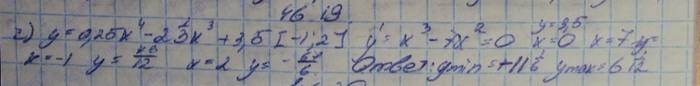 46.19
г) y = 0,25x⁴ - 2 1/3 x³ + 3,5 [-1; 2] y' = x³ - 7x² = 0 x = 0 x = 7 y =
y = 3,5
x = -1 y = /12 x = 2 y = - /6 Ответ: ymin = -11 1/6 ymax = 6 1/12